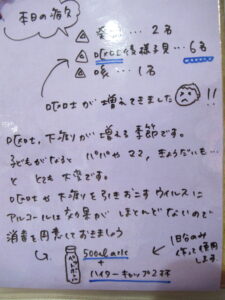 本日の病欠
発熱… 2名
嘔吐後様子見… 6名
咳… 1名
嘔吐が増えてきました !!
嘔吐、下痢が増える季節です。
子どもがなると パパやママ、きょうだいも…
と とても大変です。
嘔吐や下痢を引きおこすウイルスに
アルコールは効果がほとんどないので
消毒を用意しておきましょう
500mlの水
+
ハイターキャップ2杯
1日分のみ
作って使用
します。